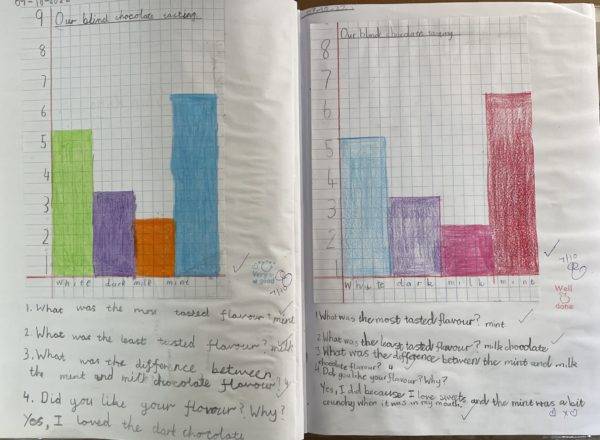 9
Our blind chocolate tasting.
8
7
6
5
4
3
2
1
white dark milk mint
Very good
7/10
1. What was the most tasted flavour? mint
2. What was the least tasted flavour? milk
3. What was the difference between
the mint and milk chocolate flavour? 4
4. Did you like your flavour? Why?
Yes, I loved the dark chocolate
Our blind chocolate tasting.
8
7
6
5
4
3
2
1
White dark milk mint
7/10
Well done
1 What was the most tasted flavour? mint
2 What was the least tasted flavour? milk chocolate
3 What was the difference between the mint and milk
chocolate flavour? 4
4 Did you like your flavour? Why?
Yes, I did because I love sweets and the mint was a bit
crunchy when it was in my mouth.